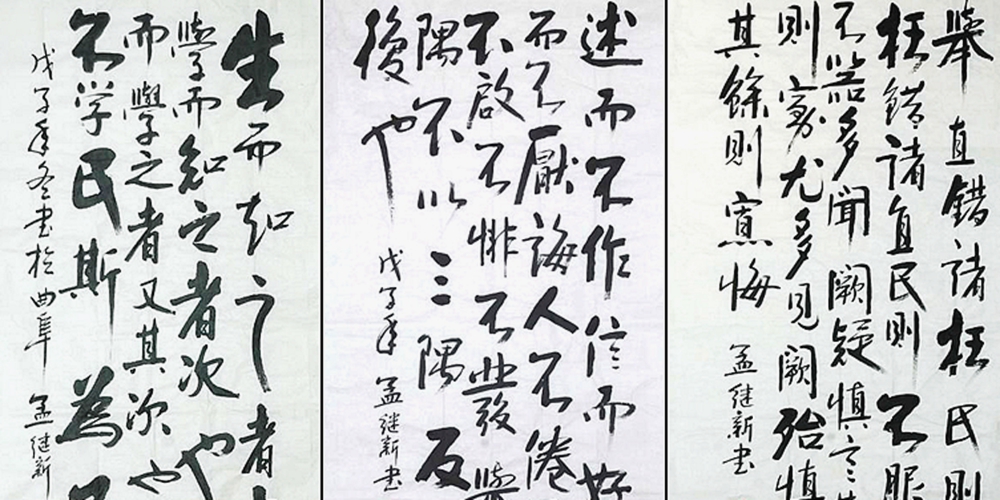 生而知之者
學而知之者次也
而學之者又其次也
不学民斯為
戊子年冬書於曲阜 孟继新
述而不作信而好
而不厭誨人不倦
不啟不悱不發
隅不以三隅反
復也
戊子年 孟继新書
舉直錯諸枉民則
枉錯諸直民則不服
不器多聞闕疑慎言
則寡尤多見闕殆慎
其餘則寡悔
孟继新書